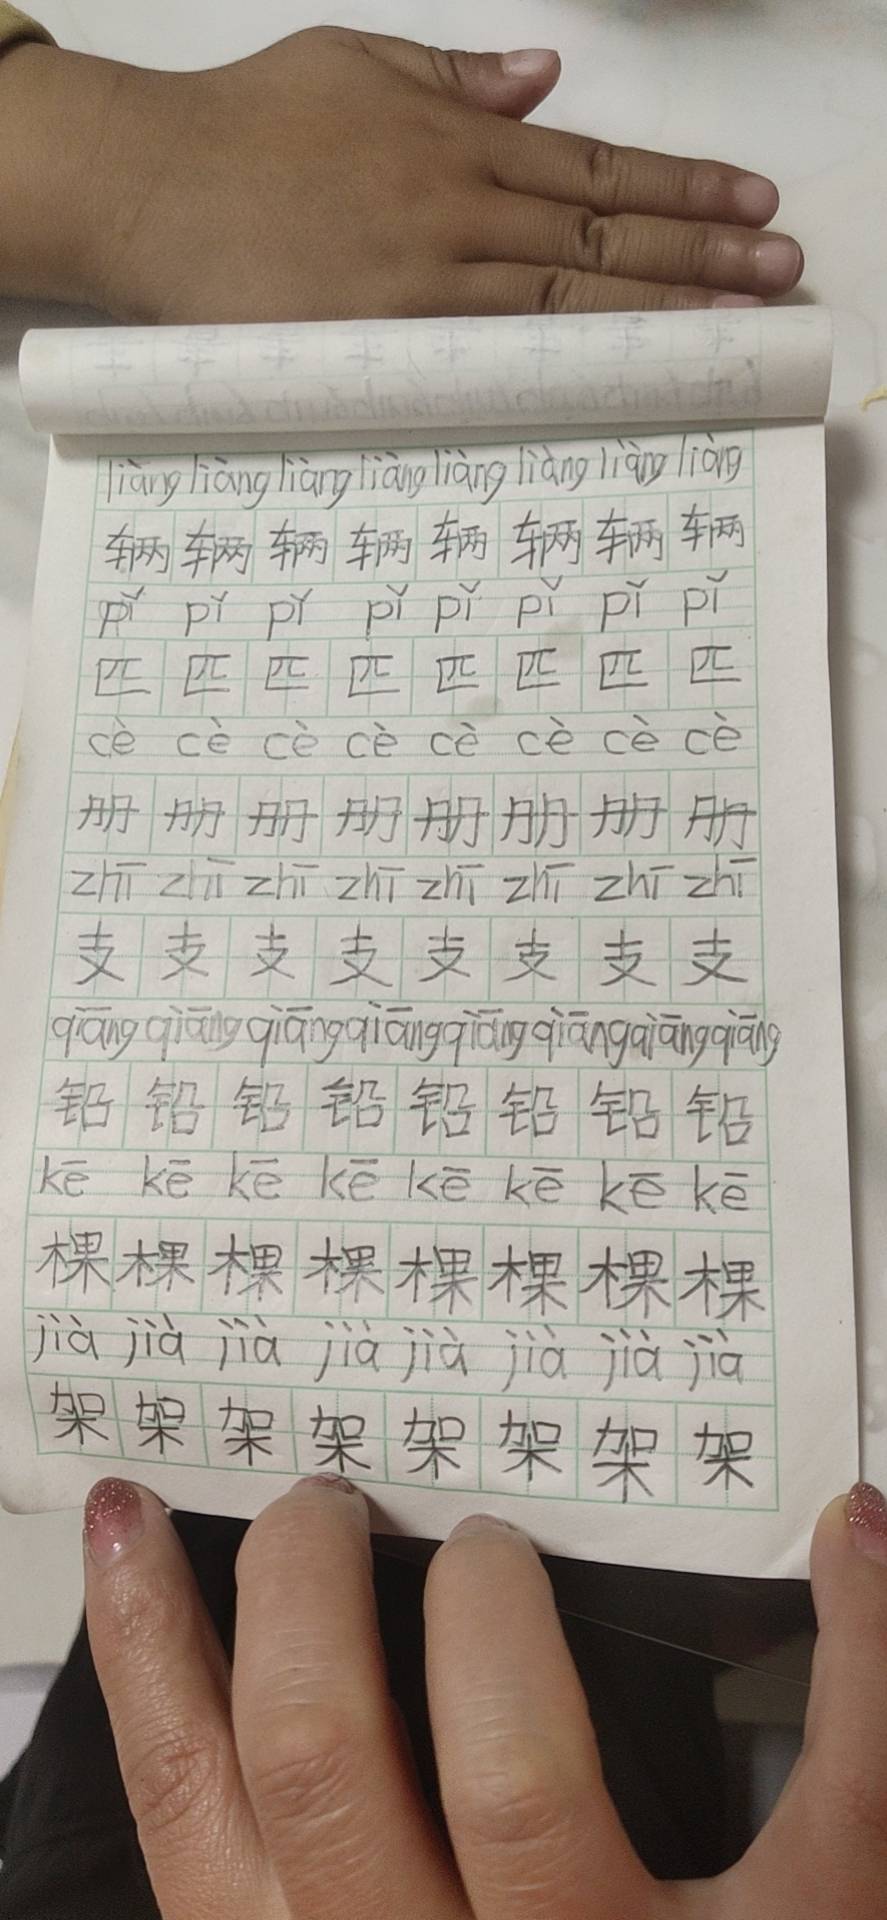 liàng liàng liàng liàng liàng liàng liàng liàng
辆 辆 辆 辆 辆 辆 辆 辆
pǐ pǐ pǐ pǐ pǐ pǐ pǐ pǐ
匹 匹 匹 匹 匹 匹 匹 匹
cè cè cè cè cè cè cè cè
册 册 册 册 册 册 册 册
zhī zhī zhī zhī zhī zhī zhī zhī
支 支 支 支 支 支 支 支
qiāng qiāng qiāng qiāng qiāng qiāng qiāng qiāng
铅 铅 铅 铅 铅 铅 铅 铅
kē kē kē kē kē kē kē kē
棵 棵 棵 棵 棵 棵 棵 棵
jià jià jià jià jià jià jià jià
架 架 架 架 架 架 架 架